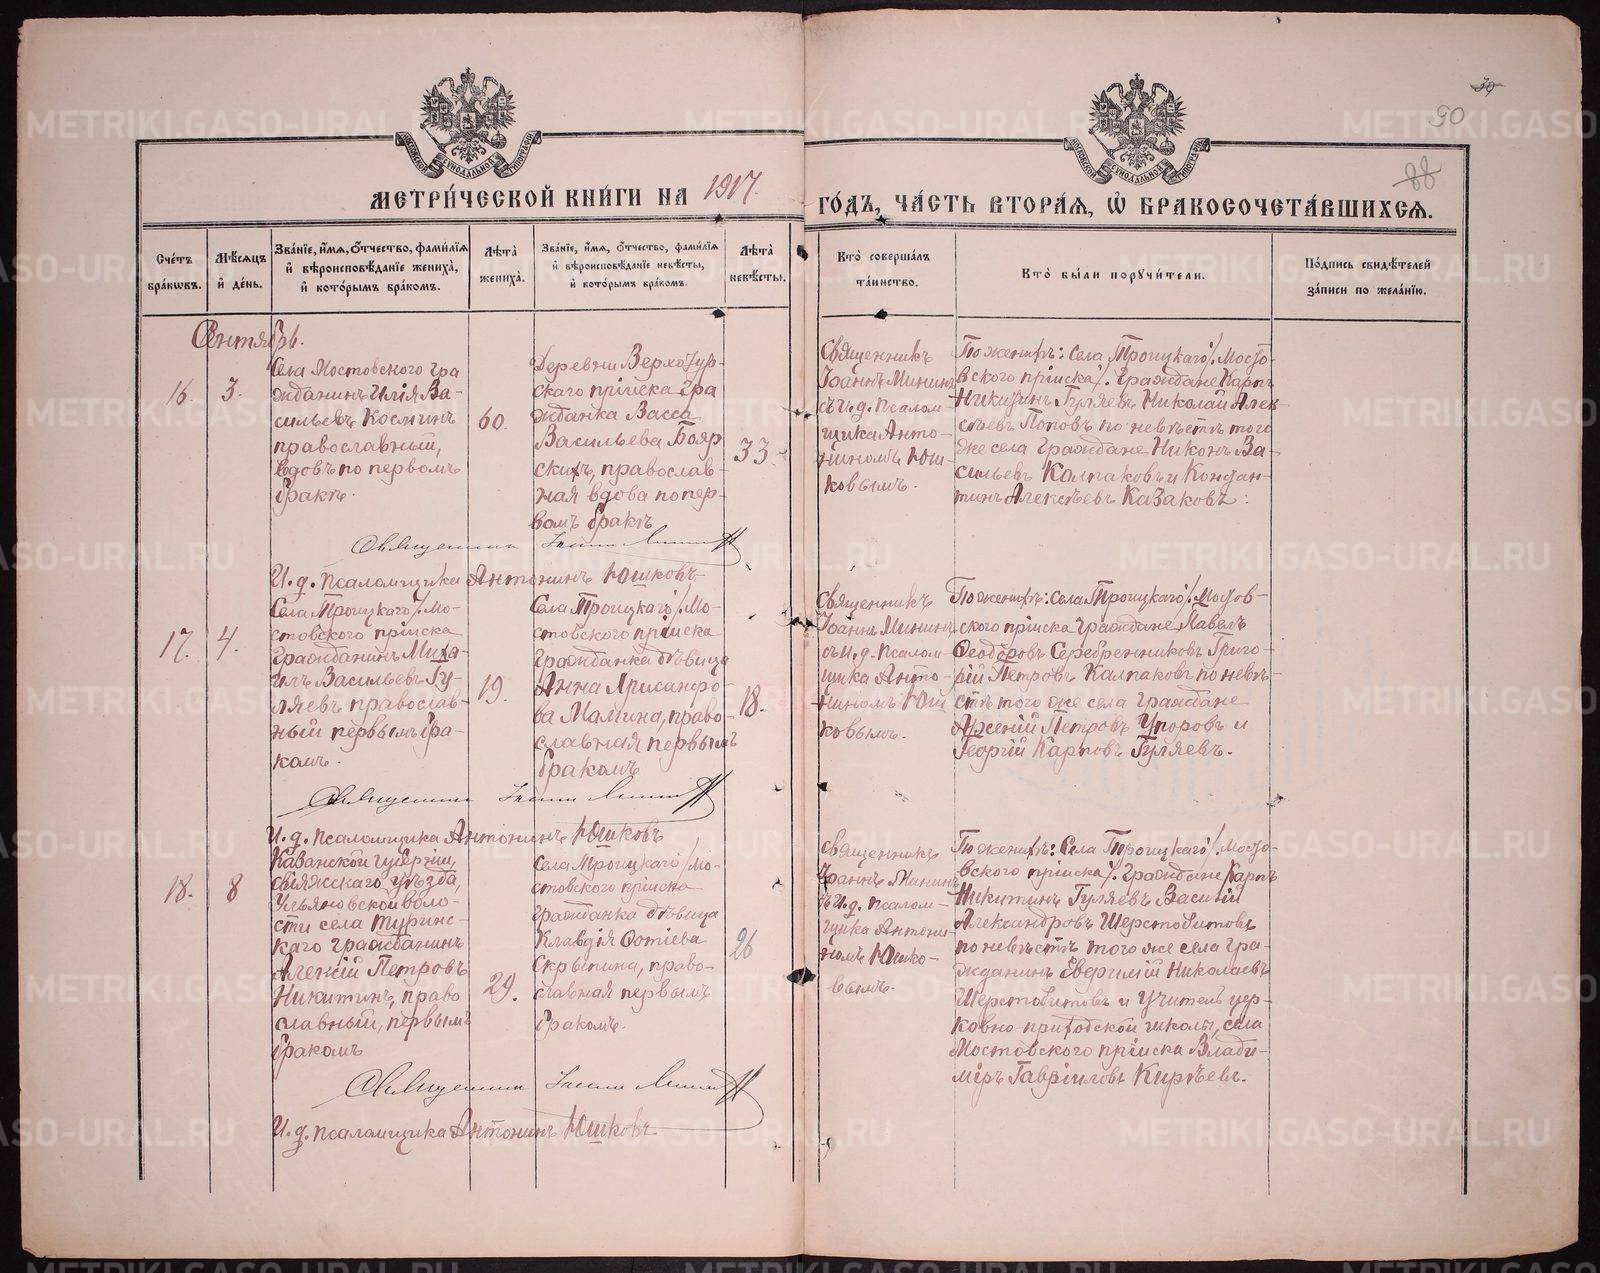 39
90
88
МЕТРИ́ЧЕСКОЙ КНИ́ГИ НА 1917.
ГО́ДЪ, ЧА́СТЬ ВТОРА́Я, Ѿ БРАКОСОЧЕТА́ВШИХСЯ.
Сче́тъ бра́кѡвъ.
Мѣ́сяцъ и́ де́нь.
Зва́нїе, и́мя, ѻ́тчество, фами́лїя
и́ вѣроисповѣ́данїе жениха̀,
и́ кото́рымъ бра́комъ.
Лѣта̀ жениха̀.
Зва́нїе, и́мя, ѻ́тчество, фами́лїя
и́ вѣроисповѣ́данїе невѣ́сты,
и́ кото́рымъ бра́комъ.
Лѣта̀ невѣ́сты.
Кто̀ соверша́лъ та́инство.
Кто̀ бы́ли порꙋчи́тели.
По́дпись свидѣ́телей за́писи по жела́нїю.
Сентябрь.
16.
3.
Села Мостовского гра
жданинъ Илія Ва-
сильевъ Космин
православный,
вдовъ по первомъ
бракѣ.
60.
Деревни Верхотур-
скаго пріиска гра
жданка Васса
Васильева Бояр
скихъ, православ-
ная вдова по пер-
вомъ бракѣ
33.
Священникъ
Іоаннъ Мининъ
съ И. д. Псалом-
щика Анто-
ниномъ Юш-
ковымъ.
По женихѣ: села Троицкаго /. Мосто-
вского пріиска /. Граждане Карпъ
Никитинъ Гуляевъ Николай Алек-
сѣевъ Поповъ по невѣстѣ того
же села Граждане Никонъ Ва-
сильевъ Колпаковъ и Констан-
тинъ Алексѣевъ Казаковъ:
Священникъ Іоаннъ Мининъ
И. д. псаломщика Антонинъ Юшковъ
17.
4.
Села Троицкаго /. Мо-
стовского пріиска
Гражданинъ Миха-
илъ Васильевъ Гу-
ляевъ православ-
ный первымъ бра-
комъ.
19.
Села Троицкаго /. Мо-
стовского пріиска
Гражданка дѣвица
Анна Хрисанфо-
ва Мамина, право-
славная первымъ
бракомъ
18.
Священникъ
Іоаннъ Мининъ
съ И. д. Псалом-
щика Анто-
ниномъ Юш
ковымъ.
По женихѣ: села Троицкаго /. Мостов-
ского пріиска Граждане Павелъ
Ѳеодоровъ Серебренниковъ Григо-
рій Петровъ Калпаковъ по невѣ-
стѣ того же села Граждане
Арсеній Петровъ Упоровъ и
Георгій Карповъ Гуляевъ.
Священникъ Іоаннъ Мининъ
И. д. псаломщика Антонинъ Юшковъ
18.
8
Казанской губерніи,
Свіяжскаго уѣзда,
Ульяновской воло-
сти села Туринс-
каго Гражданинъ
Алексій Петровъ
Никитинъ, право
славный, первымъ
бракомъ
29.
Села Троицкаго /. Мо-
стовского пріиска
Гражданка дѣвица
Клавдія Фотіева
Скрыпина, право-
славная первымъ
бракомъ.
26
Священникъ
Іоаннъ Мининъ
съ И. д. псалом-
щика Антони-
номъ Юшко-
вымъ.
По женихѣ: Села Троицкаго /. Мосто-
вского пріиска /. Граждане Карпъ
Никитинъ Гуляевъ Василій
Александровъ Шерстобитовъ
по невѣстѣ того же села Гра-
жданинъ Евгимій Николаевъ
Шерстобитовъ и Учитель цер-
ковно-приходской школы, села
Мостовского пріиска Влади-
міръ Гавріиловъ Кирѣевъ.
Священникъ Іоаннъ Мининъ
И. д. псаломщика Антонинъ Юшковъ
METRIKI.GASO-URAL.RU